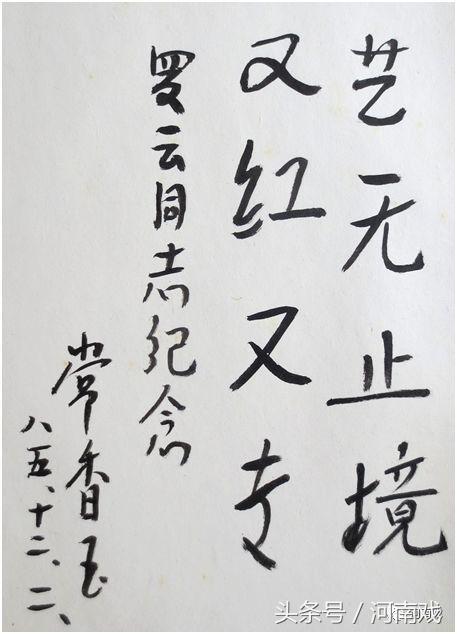 艺无止境
又红又专
罗云同志纪念
常香玉
八五、十二、二、
头条号／河南戏